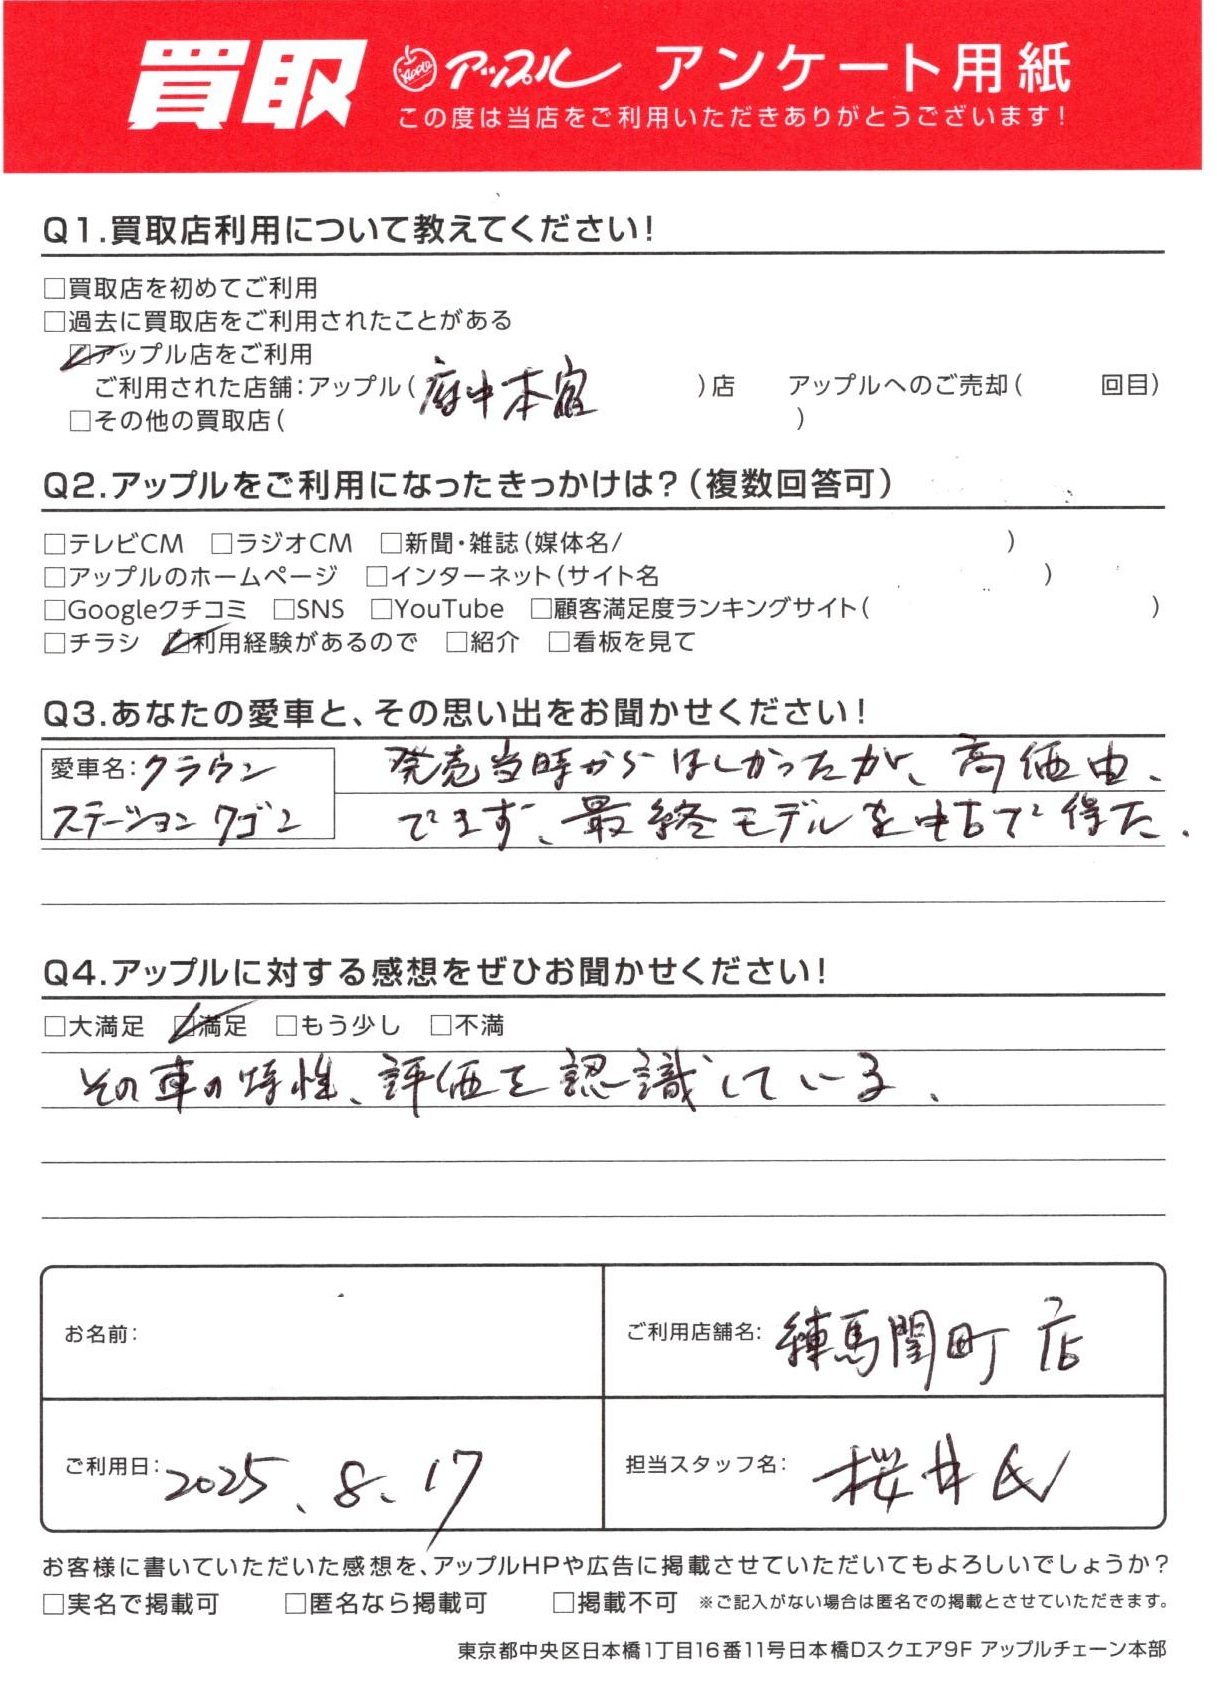 買取 Apple アップル アンケート用紙
この度は当店をご利用いただきありがとうございます!
Q1.買取店利用について教えてください!
□買取店を初めてご利用
□過去に買取店をご利用されたことがある
☑アップル店をご利用
ご利用された店舗:アップル(府中本宿)店 アップルへのご売却( 回目)
□その他の買取店( )
Q2.アップルをご利用になったきっかけは?(複数回答可)
□テレビCM □ラジオCM □新聞・雑誌(媒体名/ )
□アップルのホームページ □インターネット(サイト名 )
□Googleクチコミ □SNS □YouTube □顧客満足度ランキングサイト( )
□チラシ ☑利用経験があるので □紹介 □看板を見て
Q3.あなたの愛車と、その思い出をお聞かせください!
愛車名:クラウン
ステーションワゴン
発売当時からほしかったが、高価
でます、最終モデルを中古で得た。
Q4.アップルに対する感想をぜひお聞かせください!
□大満足 ☑満足 □もう少し □不満
その車の特性、評価を認識している。
お名前:
ご利用店舗名: 練馬関町店
ご利用日: 2025.8.17
担当スタッフ名: 桜井氏
お客様に書いていただいた感想を、アップルHPや広告に掲載させていただいてもよろしいでしょうか?
□実名で掲載可 □匿名なら掲載可 □掲載不可 ※ご記入がない場合は匿名での掲載とさせていただきます。
東京都中央区日本橋1丁目16番11号日本橋Dスクエア9F アップルチェーン本部